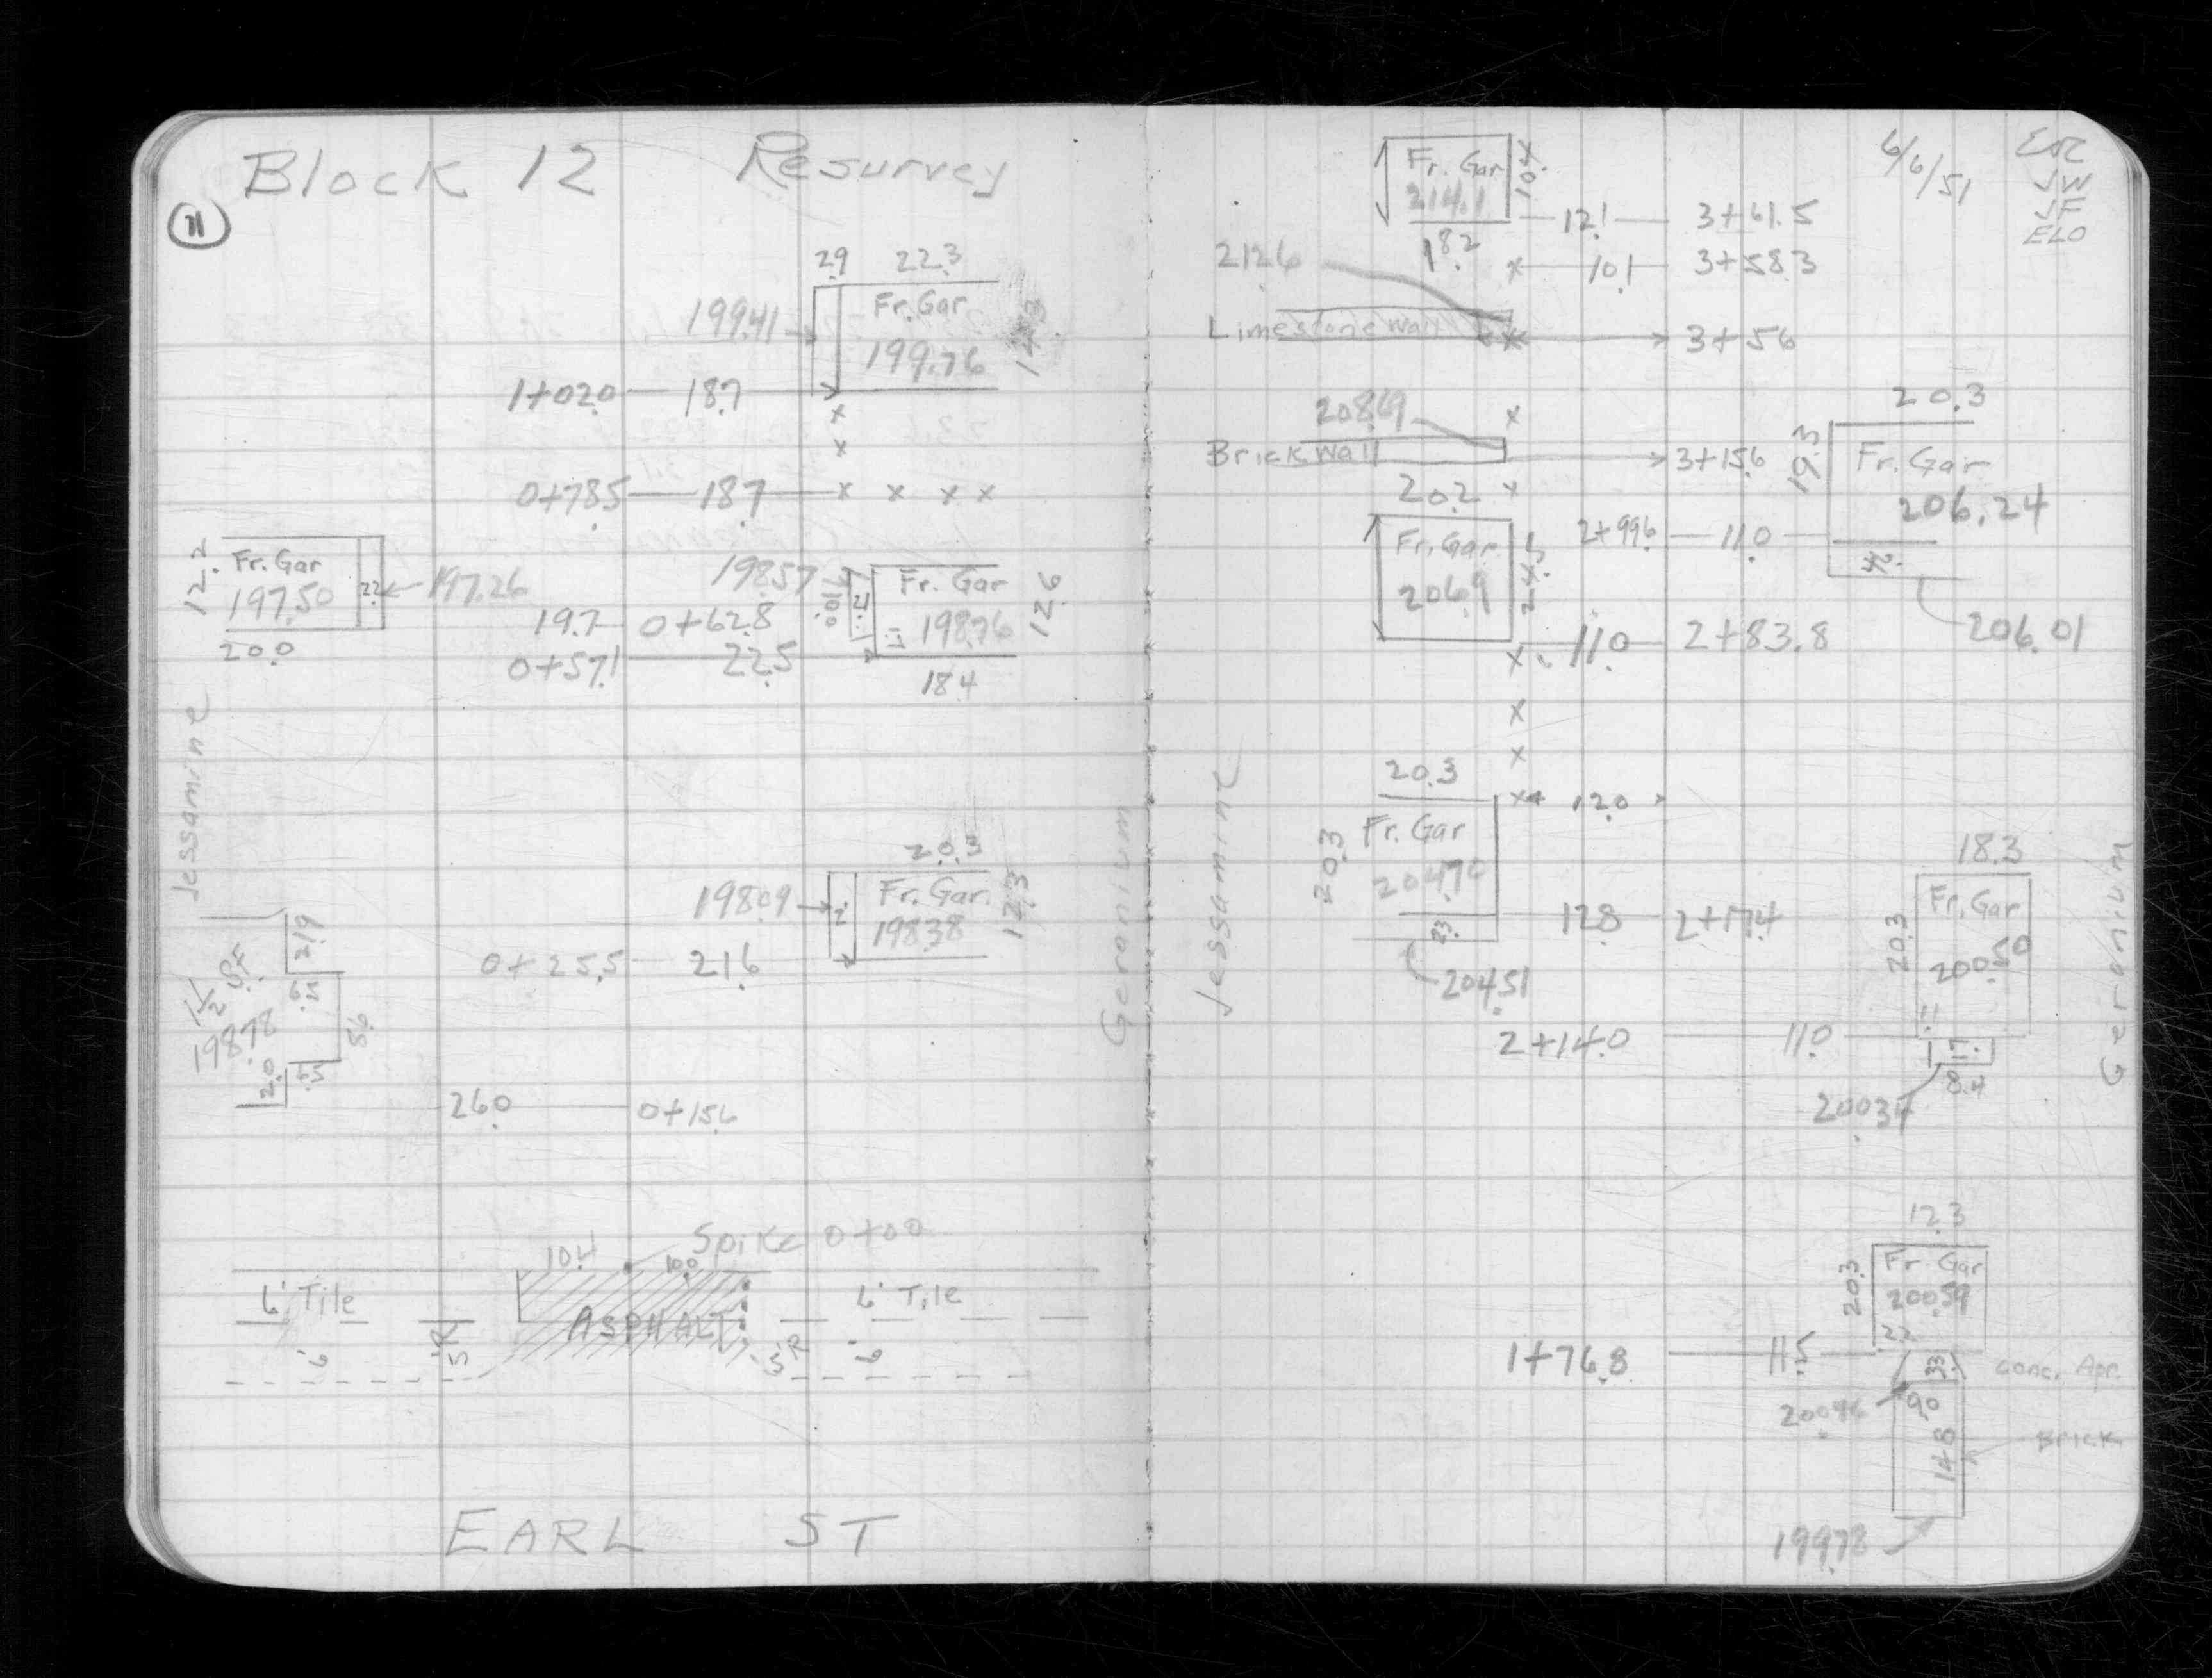 Block 12 Resurvey
29 22.3
199.41 Fr. Gar
199.76
1+02.0 18.7
x
x
0+78.5 18.7 x x x x
12.2 Fr. Gar 197.50 22 197.26
20.0
198.57 Fr. Gar 12.6
19.7 0+62.8 198.76
0+57.1 22.5
18.4
Jessamine
Geranium
20.3
198.09 Fr. Gar. 12.3
198.38
0+25.5 21.6
21.9
1 1/2 S.F.
198.78
8.6
2.0
26.0 0+15.6
Spike 0+00
10.4 10.0
6' Tile ASPHALT 6' Tile
6' 5'R 5'R 6'
EARL ST
6/6/51
JW
JF
ELO
Fr. Gar 10.4
214.1 12.1 3+61.5
18.2
x 10.1 3+58.3
212.6
Limestone Wall 3+56
208.69 x
Brick Wall 3+15.6
20.3
19.3 Fr. Gar
206.24
20.2 x
2+99.6 11.0
Fr. Gar 24.5
206.9
206.01
x 11.0 2+83.8
x
x
20.3
x 12.0
20.3 Fr. Gar
204.70
23 12.8 2+17.4
204.51
Jessamine
Geranium
18.3
20.3 Fr. Gar
200.50
2+14.0 11.0
17
8.4
200.34
12.3
20.3 Fr. Gar
200.59
22
1+76.8 11.5
33 Conc. Apr.
200.46 9.0
14.8 Brick
199.78